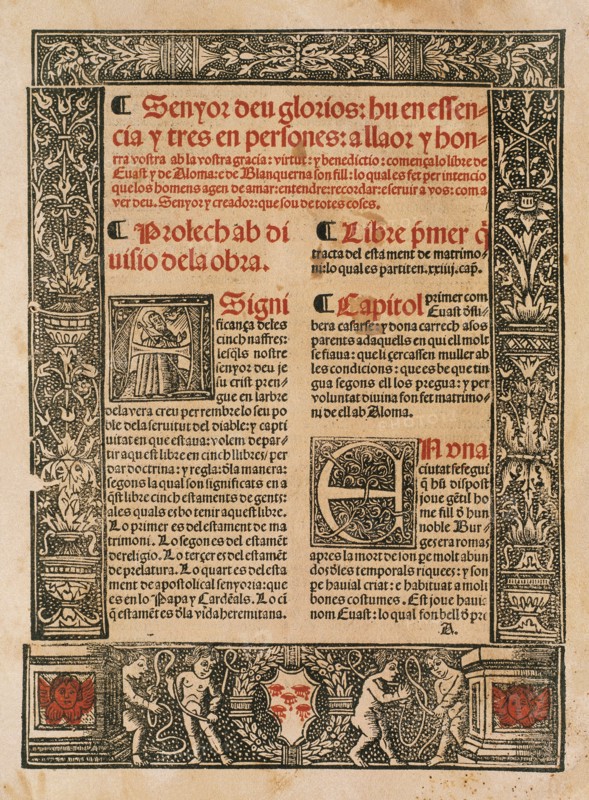 ¶ Senyor deu glorios: hu en essen-
cia y tres en persones: a llaor y hon-
rra vostra ab la vostra gracia: virtut: y benedictio: comença lo libre de
Euast y de Aloma: e de Blanquerna son fill: lo qual es fet per intencio
que los homens agen de amar: entendre: recordar: e seruir a vos: com a
ver deu. Senyor y creador: que sou de totes coses.
¶ Prolech ab di
uisio de la obra.
Signi
ficança de les
cinch naffres:
lesq̃ls nostre
senyor deu je
su crist pren-
gue en larbre
de la vera creu per rembre lo seu po
ble de la seruitut del diable: y capti
uitat en que estaua: volem depar-
tir aquest libre en cinch llibres/ per
dar doctrina: y regla: d̃la manera:
segons la qual son significats en a
q̃st libre cinch estaments de gents:
als quals es bo tenir aquest libre.
Lo primer es del estament de ma
trimoni. Lo segon es del estamẽt
de religio. Lo terçer es del estamẽt
de prelatura. Lo quart es del esta
ment de apostolical senyoria: que
es en lo Papa y Cardẽals. Lo cĩ
q̃ estamẽt es d̃la vida heremitana.
¶ Libre p̃mer q̃
tracta del estament de matrimo-
ni: lo qual es partit en .xxiiij. cap̃.
¶ Capitol primer com
Euast d̃sli-
bera casarse: y dona carrech a sos
parents a daquells en qui ell molt
se fiaua: que li çercassen muller ab
les condicions: que es be que tin
gua segons ell los pregua: y per
voluntat diuina fon fet matrimo-
ni de ell ab Aloma.
EN vna
ciutat se segui
q̃ hũ dispost
joue gẽtil ho
me fill d̃ hun
noble Bur-
ges era romas
apres la mort de son pe molt abun
dos d̃les temporals riquees: y son
pe hauial criat: e habituat a molt
bones costumes. Est joue hauie
nom Euast: lo qual fon bell d̃ pri
A.